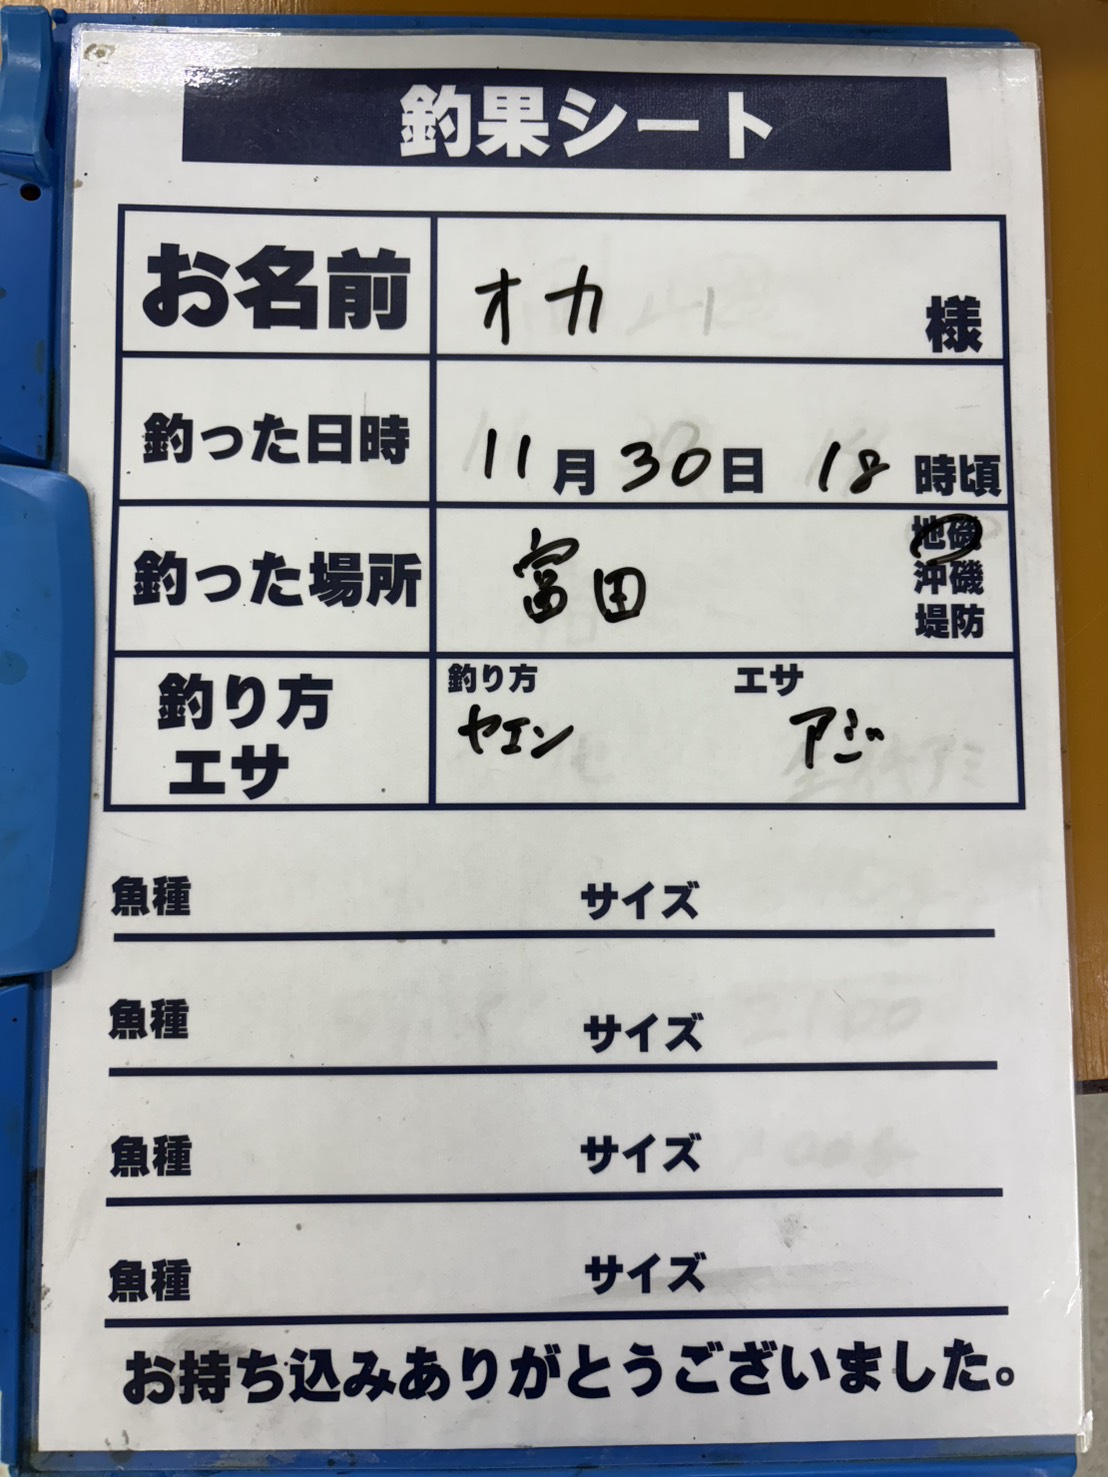 釣果シート
お名前 オカ 様
釣った日時 11月30日 18時頃
釣った場所 富田 地磯
沖磯
堤防
釣り方 エサ
釣り方 ヤエン エサ アジ
魚種 サイズ
魚種 サイズ
魚種 サイズ
魚種 サイズ
お持ち込みありがとうございました。